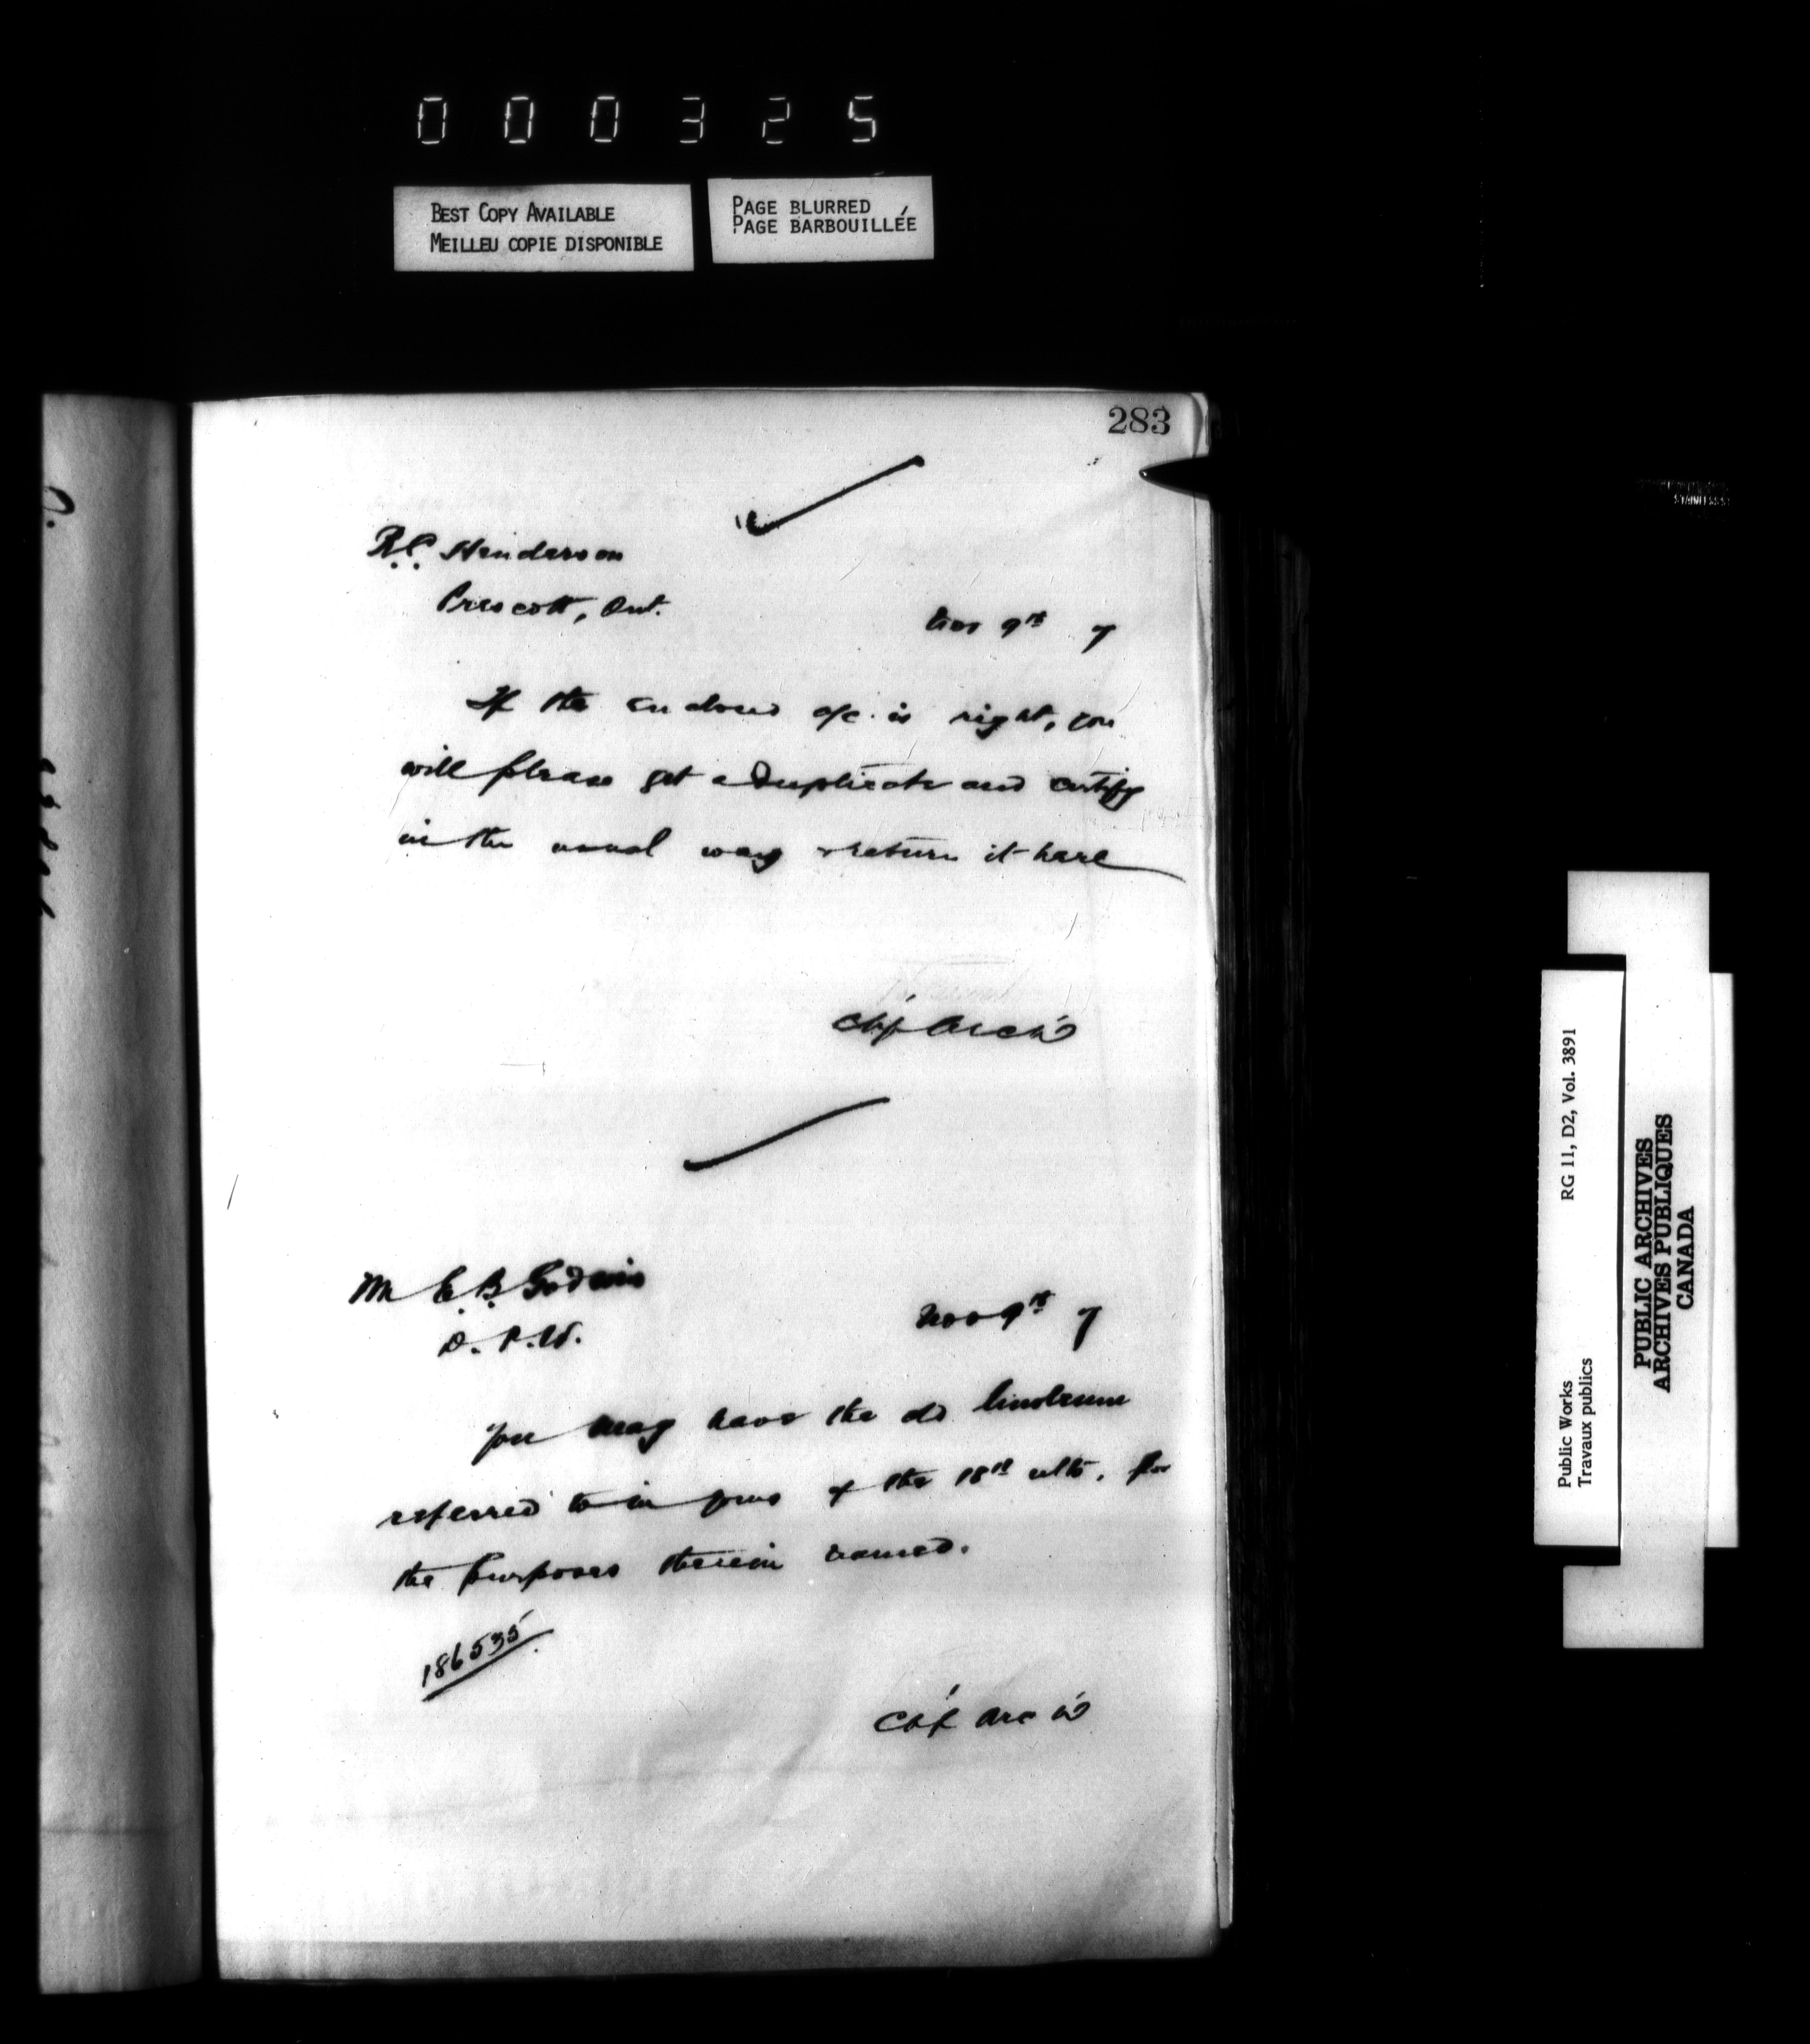 000325
BEST COPY AVAILABLE
MEILLEU COPIE DISPONIBLE
PAGE BLURRED
PAGE BARBOUILLÉE
283
R.C. Henderson
Prescott, Ont.
Nov 9th 7
If the enclosed a/c. is right, you
will please get a Duplicate and certify
in the usual way & return it here
Chf Arch't
Mr E.B. Godwin
D.P.W.
Nov 9th 7
You may have the old linoleum
referred to in yours of the 18th ulto. for
the purposes therein named.
186535
Chf Arc't
STAINLESS
Public Works
Travaux publics
RG 11, D2, Vol. 3891
PUBLIC ARCHIVES
ARCHIVES PUBLIQUES
CANADA